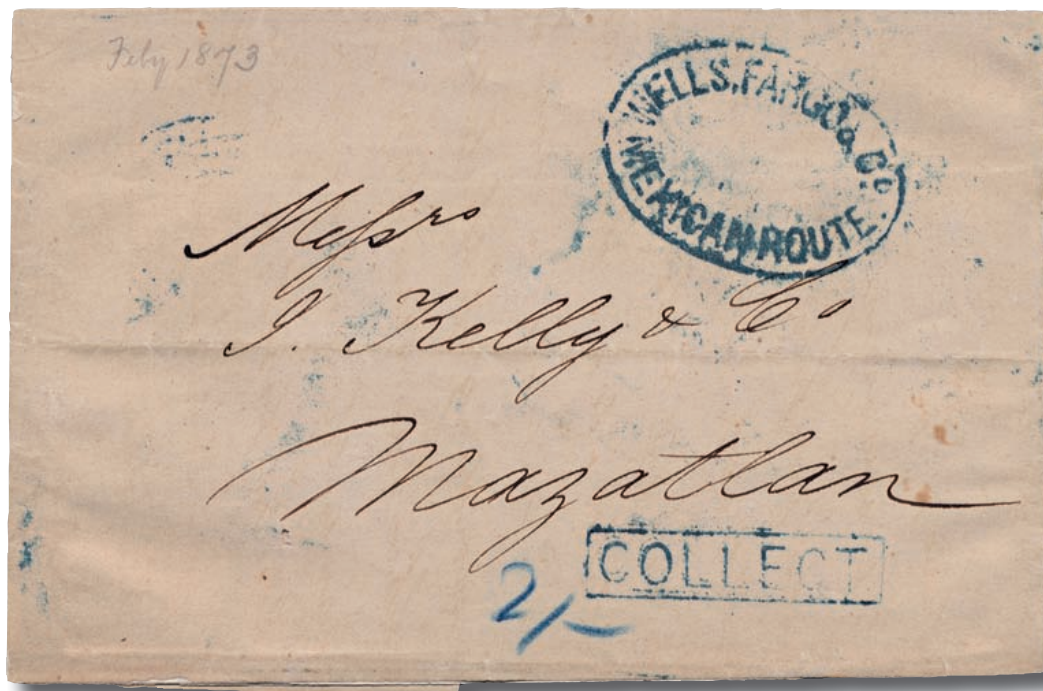 Feby 1873
WELLS, FARGO & Co.
MEXICAN ROUTE
Messrs
J. Kelly & Co
Mazatlan
COLLECT
2/-